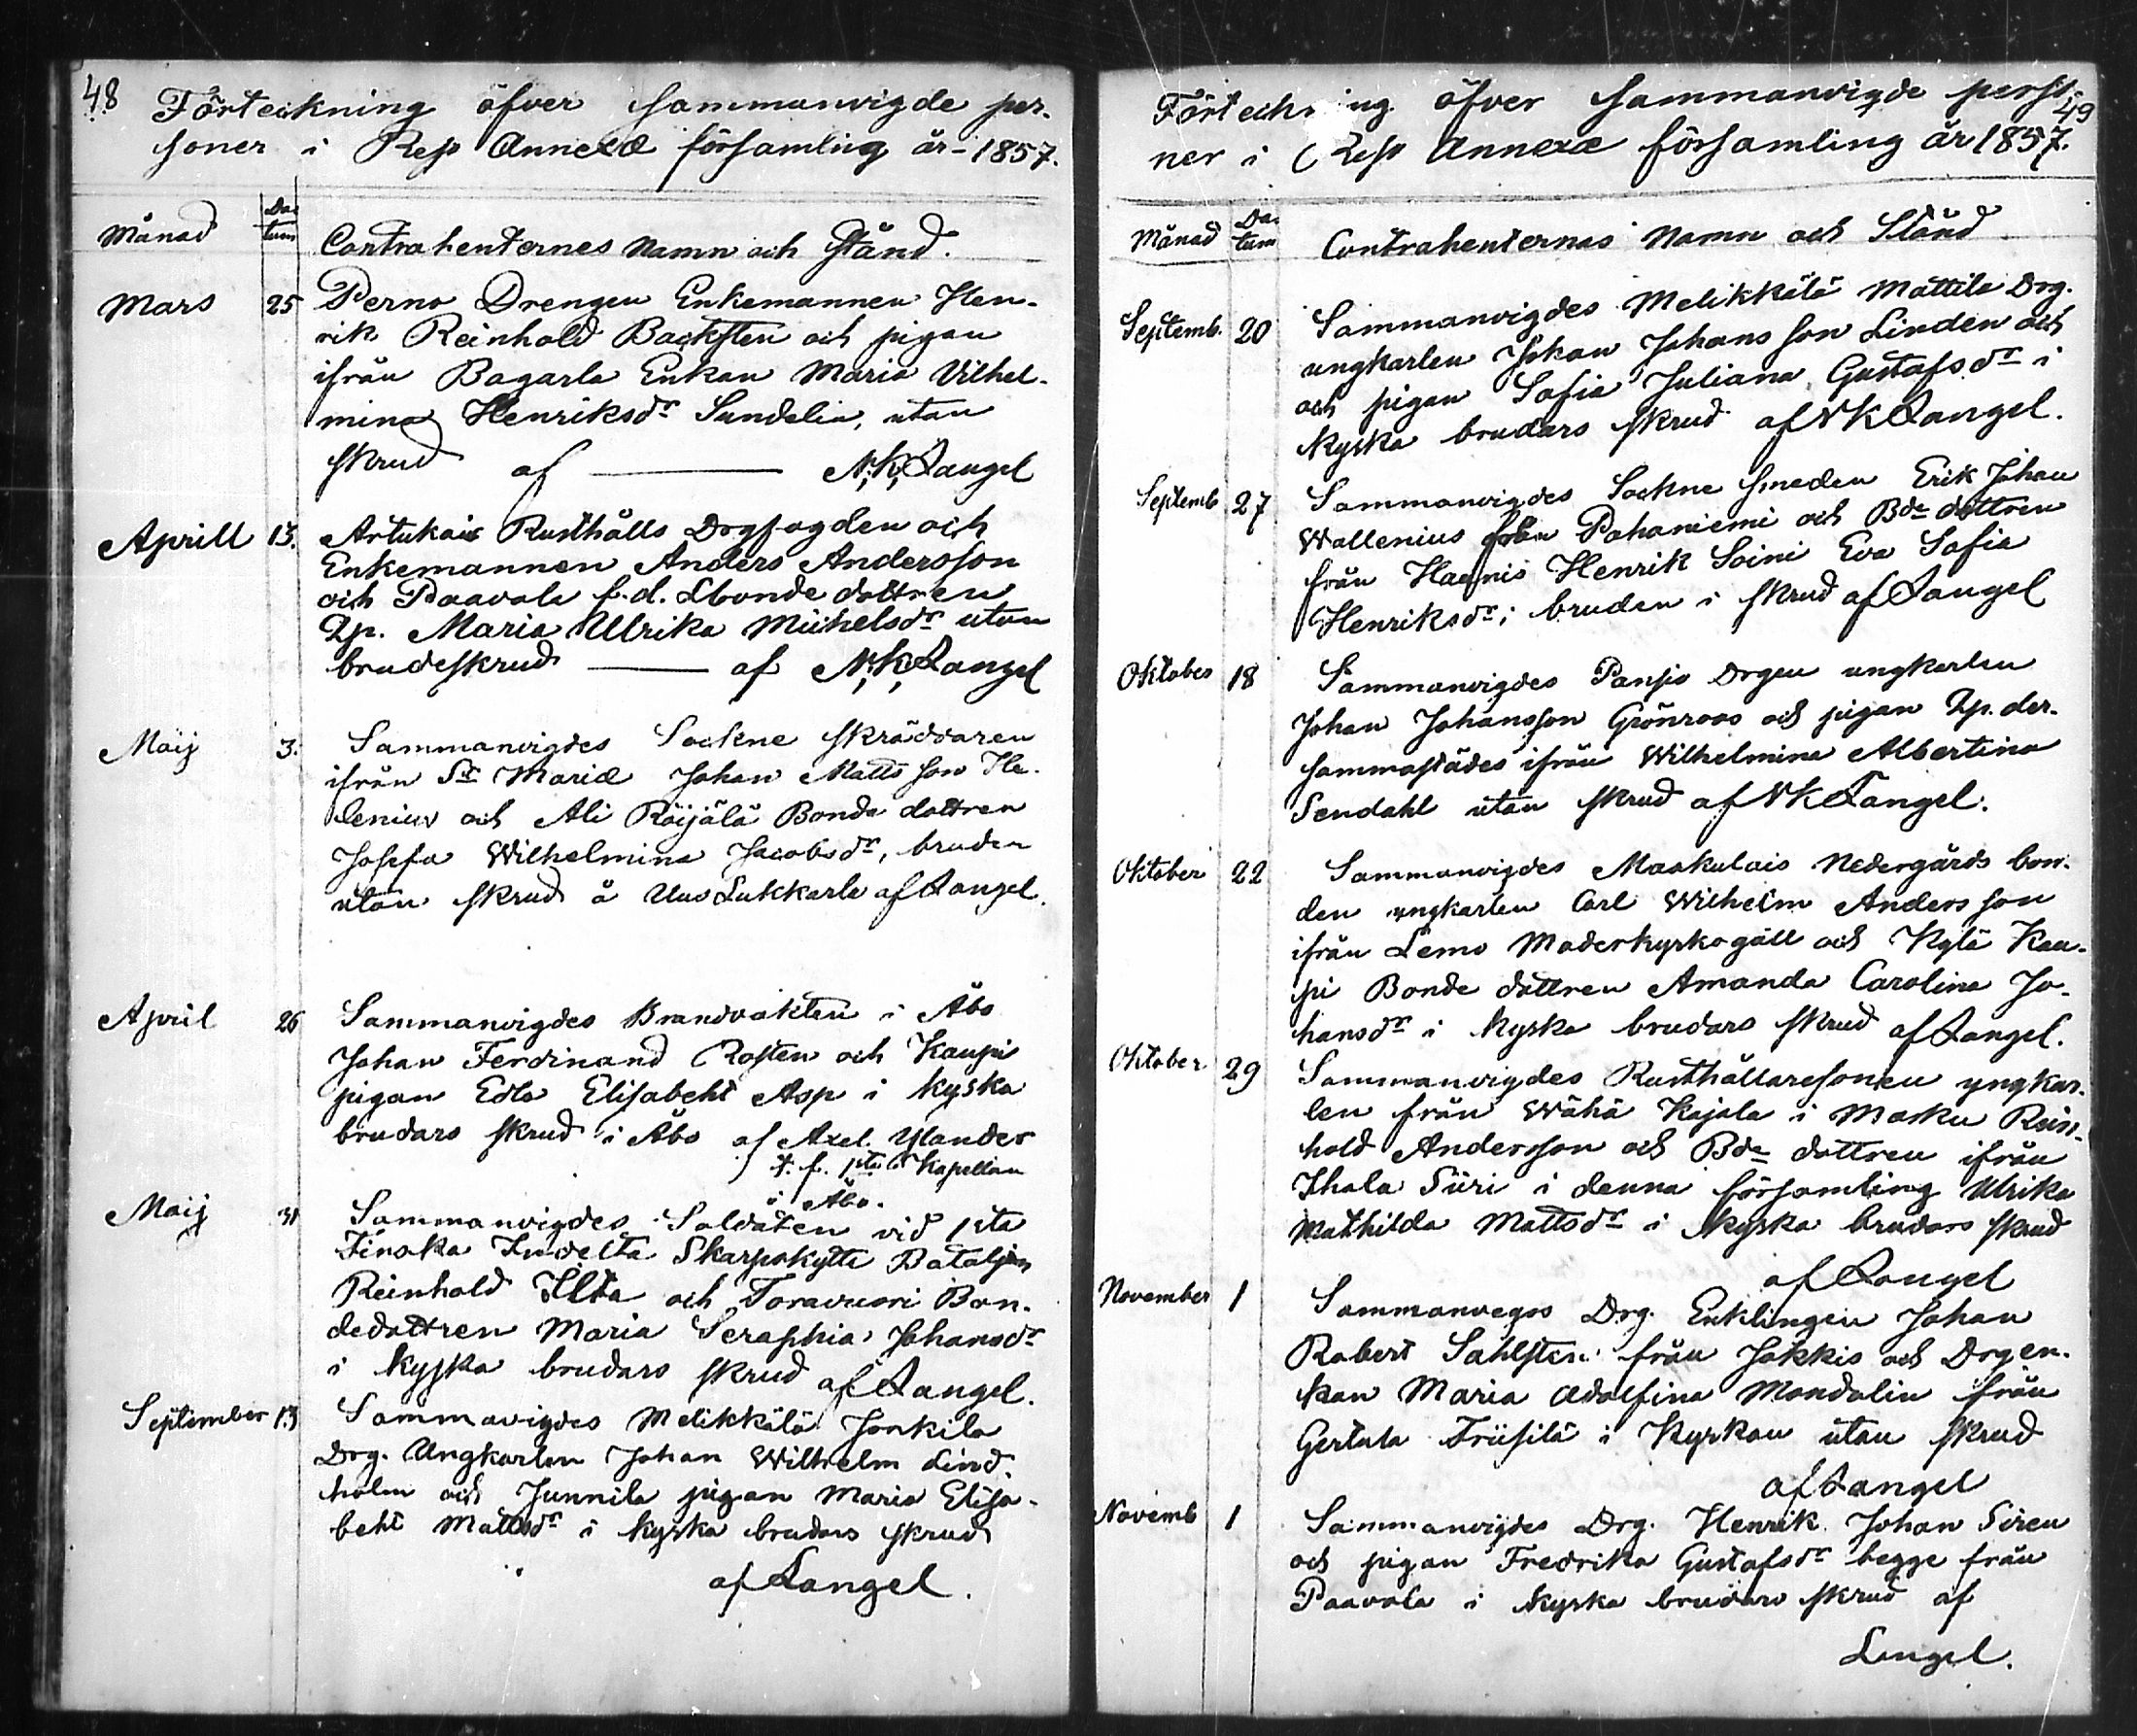 48
Förteckning öfver sammanvigde per-
soner i Reso Annexæ församling år 1857.
Månad
Da-
tum
Contrahenternes Namn och Stånd.
Mars 25 Perno Drengen Enkemannen Hen-
rik Reinhold Backsten och pigan
ifrån Bagarla Enkan Maria Vilhel-
mina Henriksdr Sundelin, utan
skrud af N.K. Langel
Aprill 13. Artukais Rusthålls Drgfogden och
Enkemannen Anders Andersson
och Paavola f.d. Lbonde dottren
Qp. Maria Ulrika Michelsdr utan
brudeskrud af N.K. Langel
Maij 3. Sammanvigdes Sockne skräddaren
ifrån St Mariæ Johan Matts son He-
lenius och Ali Röijälä Bonde dottren
Josefa Wilhelmina Jacobsdr, bruden
utan skrud å Uus Lukkarla af Langel.
April 26 Sammanvigdes Brandvakten i Åbo
Johan Ferdinand Rosten och Kaupi
pigan Edla Elisabeht Asp i kyska
brudars skrud i Åbo af Axel. Ylander
t. f. 1sta Kapellan
i Åbo.
Maij 31 Sammanvigdes Soldaten vid 1sta
Finska Indelta Skarpskytte Bataljon
Reinhold Ilta och Toravuori Bon-
dedottren Maria Seraphia Johansdr
i kyska brudars skrud af Langel.
September 13 Sammavigdes Melikkälä Jonkila
Drg. Ungkarlen Johan Wilhelm Lind-
holm och Junnila pigan Maria Elisa-
beht Mattsdr i kyska brudars skrud
af Langel.
49
Förteckning öfver sammanvigde perso-
ner i Reso Annexæ församling år 1857.
Månad
Da-
tum
Contrahenternas Namn och Stånd
Septemb. 20 Sammanvigdes Melikkälä Mattila Drg.
ungkarlen Johan Johans son Linden och
och pigan Sofia Juliana Gustafsdr i
kyska brudars skrud af NK Langel.
Septemb 27 Sammanvigdes Sockne smeden Erik Johan
Wallenius från Pahaniemi och Bde dottren
från Haunis Henrik Soini Eva Sofia
Henriksdr; bruden i skrud af Langel
Oktober 18 Sammanvigdes Panjo Drgen ungkarlen
Johan Johansson Grönroos och pigan Qp. der-
sammastädes ifrån Wilhelmina Albertina
Sendahl utan skrud af NK Langel.
Oktober 22 Sammanvigdes Maskulais Nedergårds bon-
den yngkarlen Carl Wilhelm Anders son
ifrån Lemo Moderkyrkogäll och Kylä Kau-
pi Bonde dottren Amanda Carolina Jo-
hansdr i kyska brudars skrud af Langel.
Oktober 29 Sammanvigdes Rusthållaresonen yngkar-
len från Wähä Kajala i Masku Rein-
hold Andersson och Bde dottren ifrån
Ihala Siiri i denna församling Ulrika
Mathilda Mattsdr i kyska brudars skrud
af Langel
November 1 Sammanvegos Drg. Enklingen Johan
Robert Sahlsten från Jokkis och Drgen-
kan Maria Adolfina Mondalin från
Gertula Friisilä i Kyrkan utan skrud
af Langel
Novemb 1 Sammanvigdes Drg. Henrik Johan Siren
och pigan Fredrika Gustafsdr begge från
Paavola i kyska brudars skrud af
Langel.